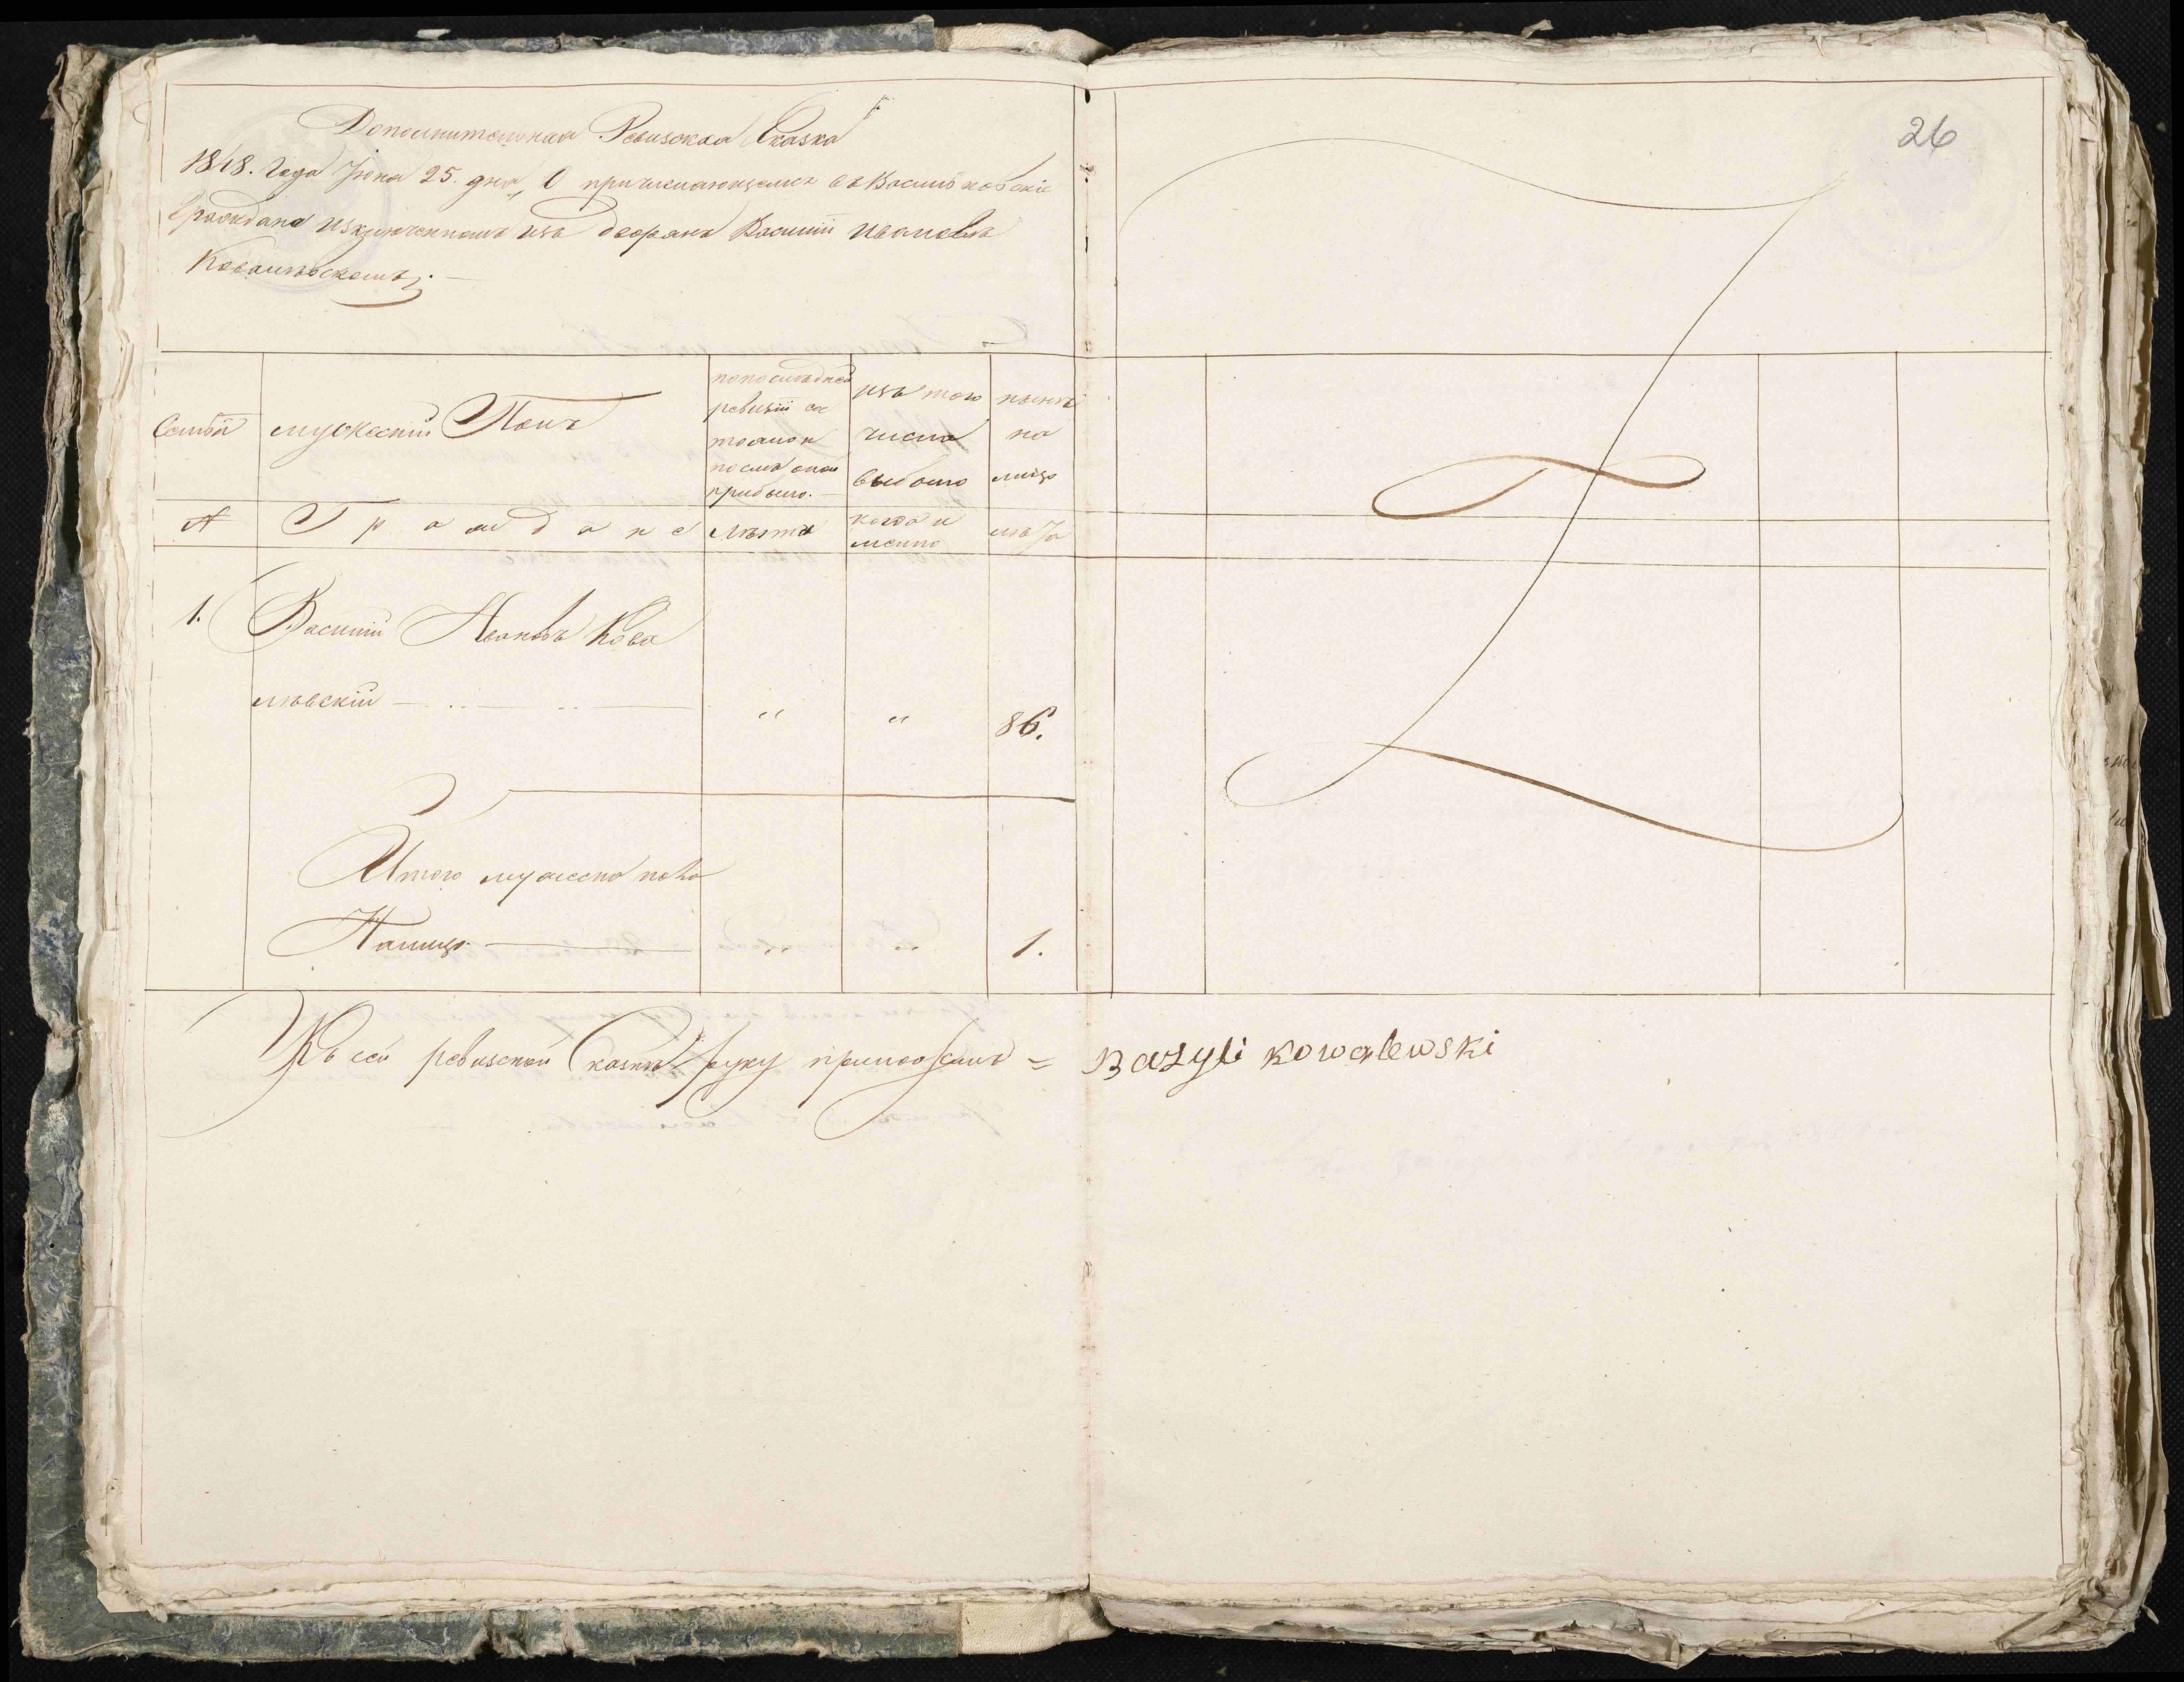 Дополнительная Ревизская Сказка
1848. Года Іюня 25. дня, О причисляющемся въ Васильковскіе
Граждане изключенномъ изъ дворянъ Василіи Ивановѣ
Ковалѣвскомъ;
26
Семьи
мужескій Полъ
по последней
ревизіи со
тоялои
послѣ онои
прибыло.
изъ того
числа
выбыло
нынѣ
на
лицо
№
Граждане
лѣта
когда и
менно
лѣта
1. Василій Ивановъ Кова
лѣвскій — .. — .. —
" " 86.
Итого мужеска пола
Налицо — " " 1.
Къ сей ревизской Сказкѣ руку приложилъ = Bazyli Kowalewski